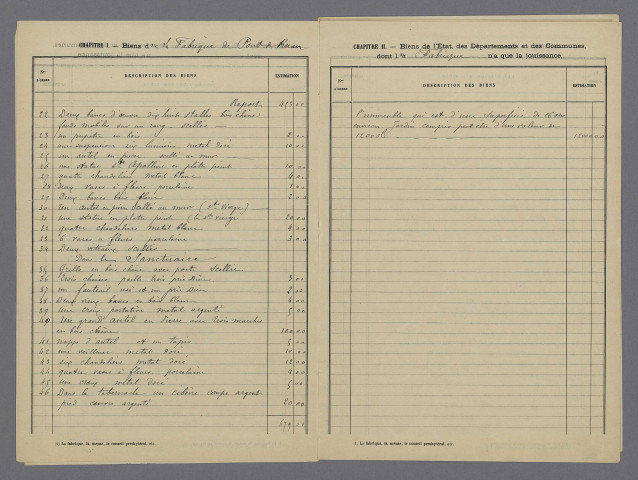 CHAPITRE I. — Biens de la Fabrique de Pont de Ruan
Nos d'ordre DESCRIPTION DES BIENS ESTIMATION
Report 453 00
22 Deux bancs d'œuvre dix huit stalles bois chêne
fonds mobiles sur un rang — scellés —
23 un pupitre en bois 2 00
24 une suspension six lumières métal doré 10 00
25 un autel en pierre scellé au mur
26 une statue St Apolline en platre peint 10 00
27 quatre chandeliers métal blanc 4 00
28 deux vases à fleurs porcelaine 1 00
29 Deux bancs bois blanc 2 00
30 Un autel en pierre scellé au mur (Ste Vierge)
31 une statue en platre peint (la Ste vierge) 20 00
32 quatre chandeliers métal blanc 4 00
33 6 vases à fleurs porcelaine 3 00
34 Deux vitraux scellés
Dans le Sanctuaire
35 Grille en bois chêne avec porte scellée
36 trois chaises paille trois prie Dieu 3 00
37 un fauteuil noir et un prie Dieu 2 00
38 Deux vieux bancs en bois blanc 4 00
39 une croix portative métal argenté 5 00
40 Un grand autel en pierre avec trois marches
en bois chêne 100 00
41 nappe d'autel et un tapis 5 00
42 une veilleuse métal doré 10 00
43 six chandeliers métal doré 12 00
44 quatre vases à fleurs porcelaine 4 00
45 une croix métal doré 5 00
46 Dans le tabernacle un ciboire coupe argent
pied cuivre argenté 20 00
679 00
(1) La fabrique, la mense, le conseil presbytéral, etc.
CHAPITRE II. — Biens de l'État, des Départements et des Communes,
dont la Fabrique n'a que la jouissance.
Nos d'ordre DESCRIPTION DES BIENS ESTIMATION
L'immeuble qui est d'une superficie de 16 ares
environ Jardin compris peut être d'une valeur de
12000 12000 00
(1) La fabrique, la mense, le conseil presbytéral, etc.